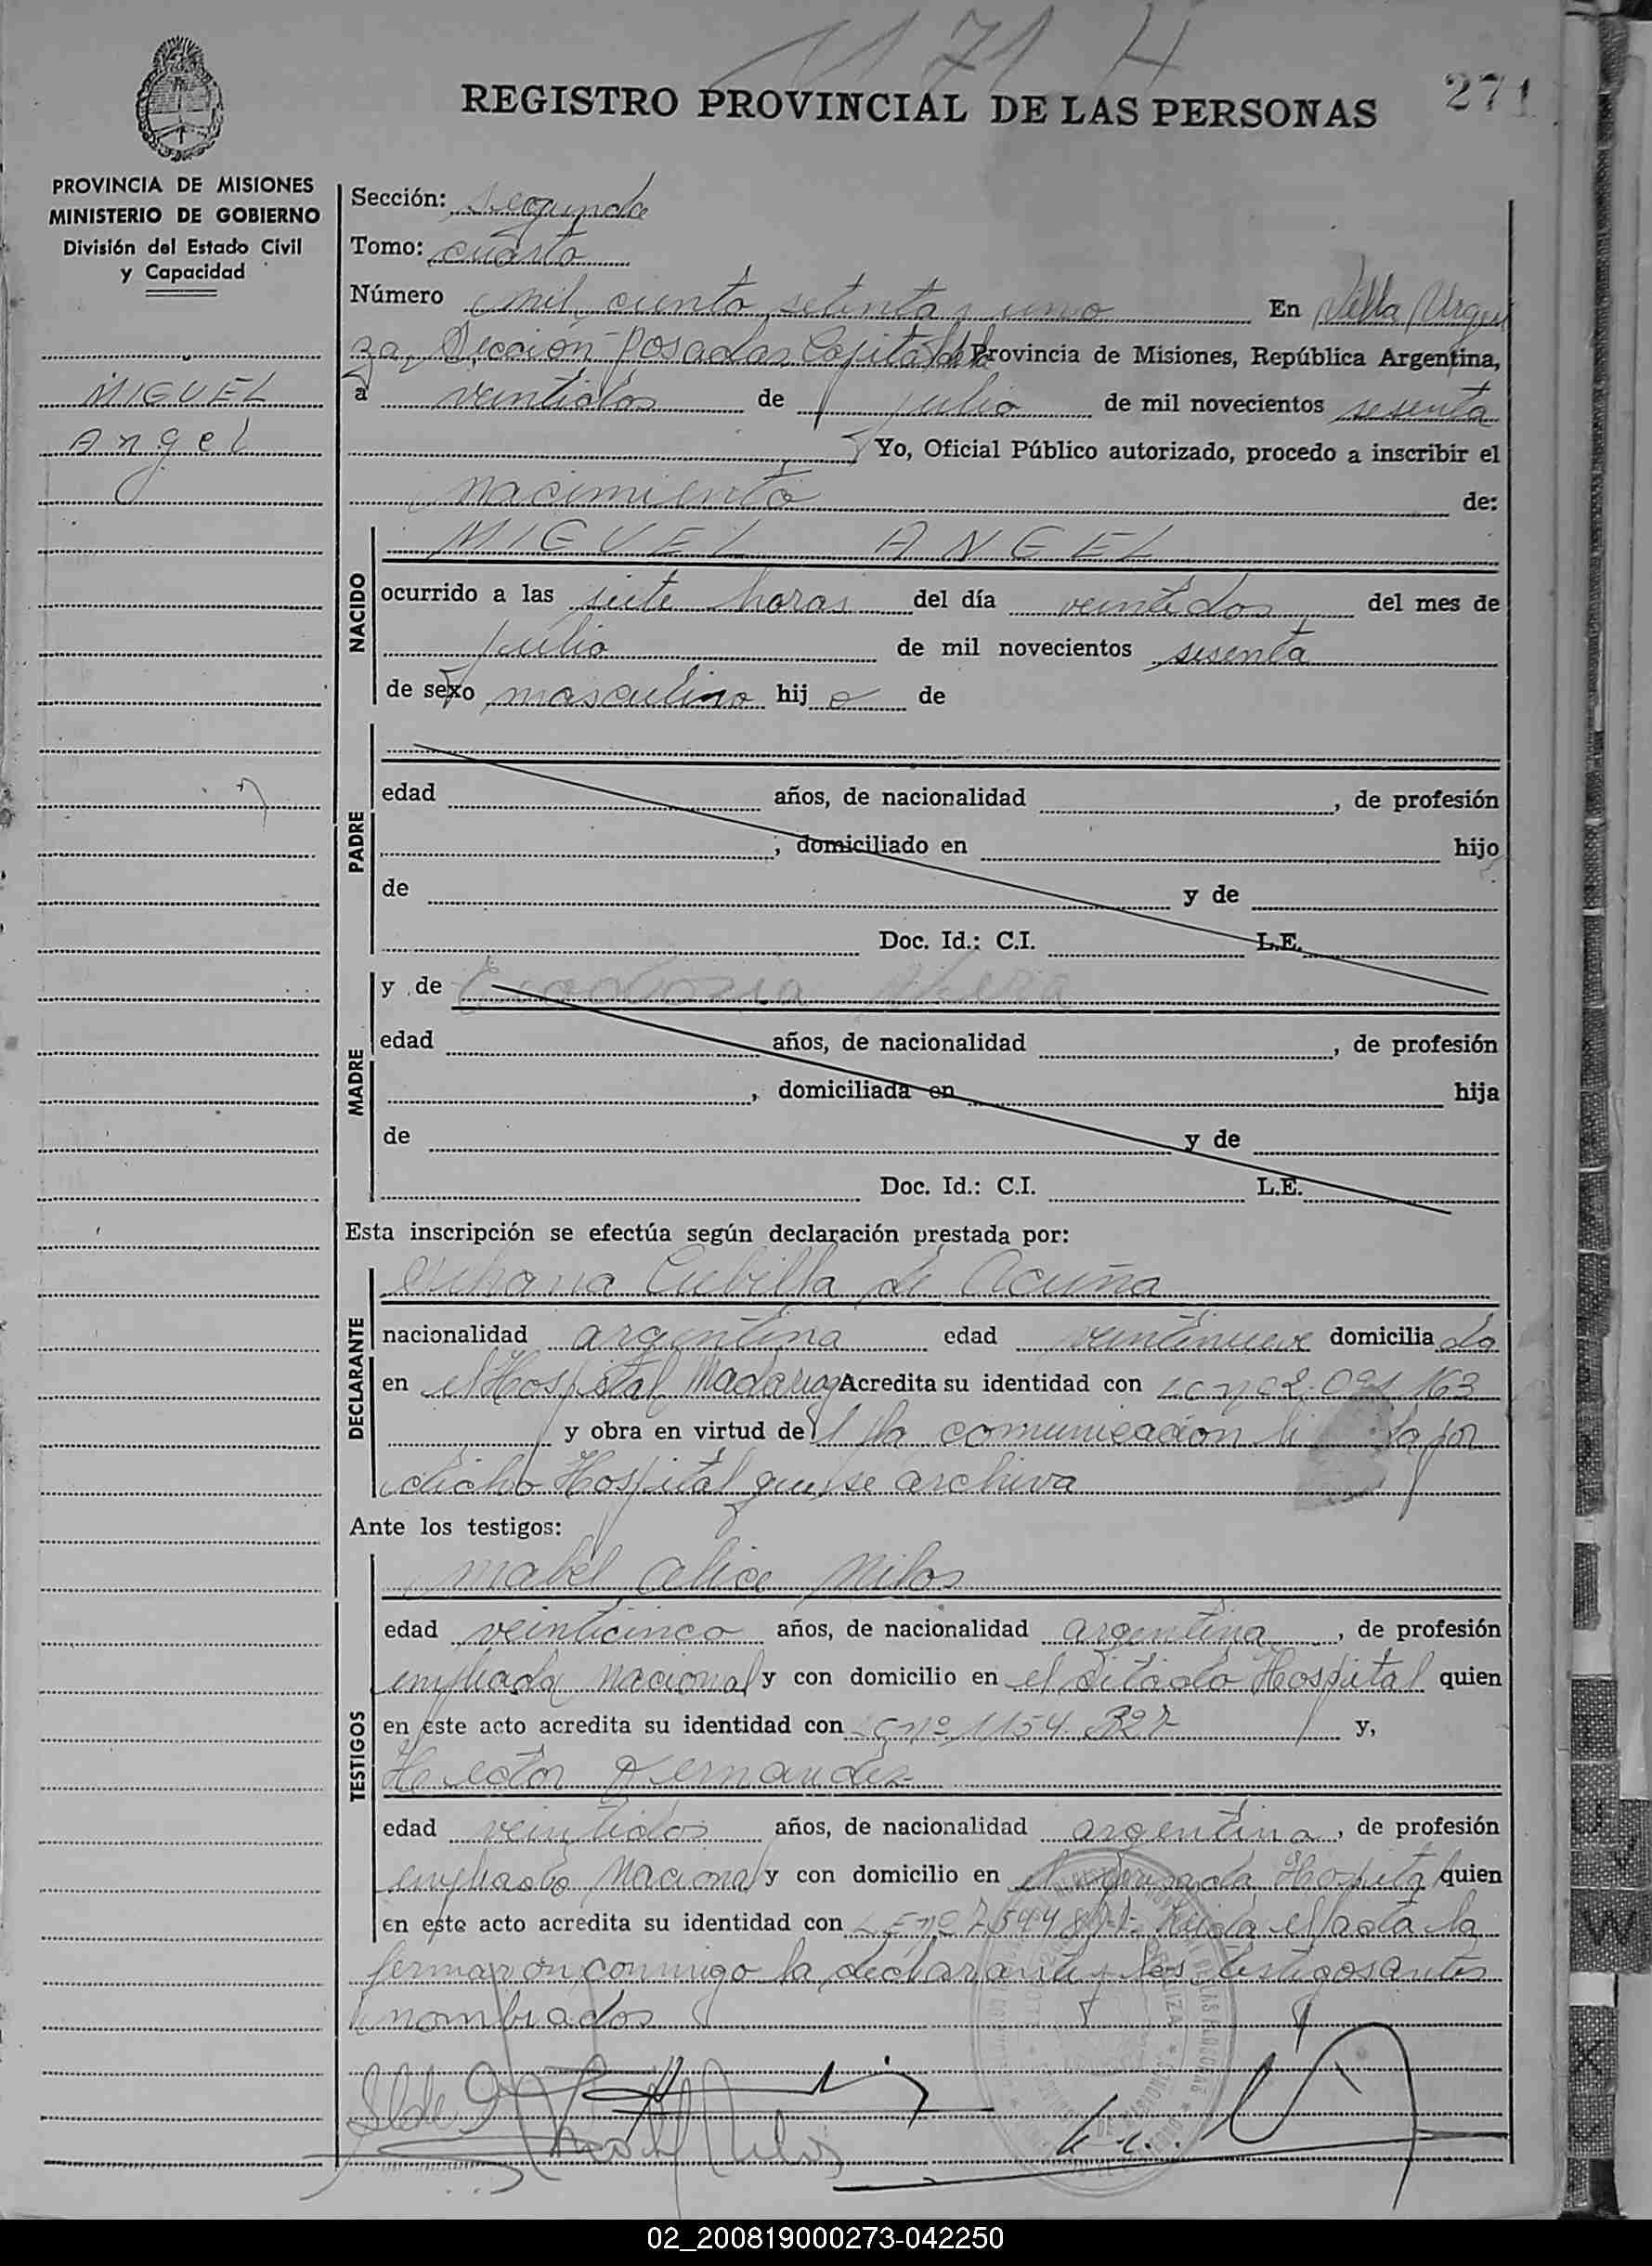 1171 H
REGISTRO PROVINCIAL DE LAS PERSONAS
271
PROVINCIA DE MISIONES
MINISTERIO DE GOBIERNO
División del Estado Civil
y Capacidad
MIGUEL
Angel
Sección: segunda
Tomo: cuarto
Número mil ciento setenta y uno En Villa Urqui
za, Sección Posadas Capital de la Provincia de Misiones, República Argentina,
a veintidos de julio de mil novecientos sesenta
Yo, Oficial Público autorizado, procedo a inscribir el
nacimiento de:
NACIDO
MIGUEL ANGEL
ocurrido a las siete horas del día veintidos del mes de
julio de mil novecientos sesenta
de sexo masculino hijo de
PADRE
edad años, de nacionalidad , de profesión
, domiciliado en hijo
de y de
Doc. Id.: C.I. L.E.
MADRE
y de
edad años, de nacionalidad , de profesión
, domiciliada en hija
de y de
Doc. Id.: C.I. L.E.
Esta inscripción se efectúa según declaración prestada por:
DECLARANTE
Cubilla de Acuña
nacionalidad argentina edad veintinueve domiciliada
en el Hospital Madariaga Acredita su identidad con
y obra en virtud de la comunicación por
dicho Hospital que se archiva
Ante los testigos:
TESTIGOS
Mabel Alice Milos
edad veinticinco años, de nacionalidad argentina, de profesión
empleada Nacional y con domicilio en el citado Hospital quien
en este acto acredita su identidad con 1154.827 y,
Hector Fernandez
edad veintidos años, de nacionalidad argentina, de profesión
empleado Nacional y con domicilio en el Hospital quien
en este acto acredita su identidad con LE nº Leida el acta la
firmaron conmigo la declarante y los testigos antes
nombrados
02_200819000273-042250